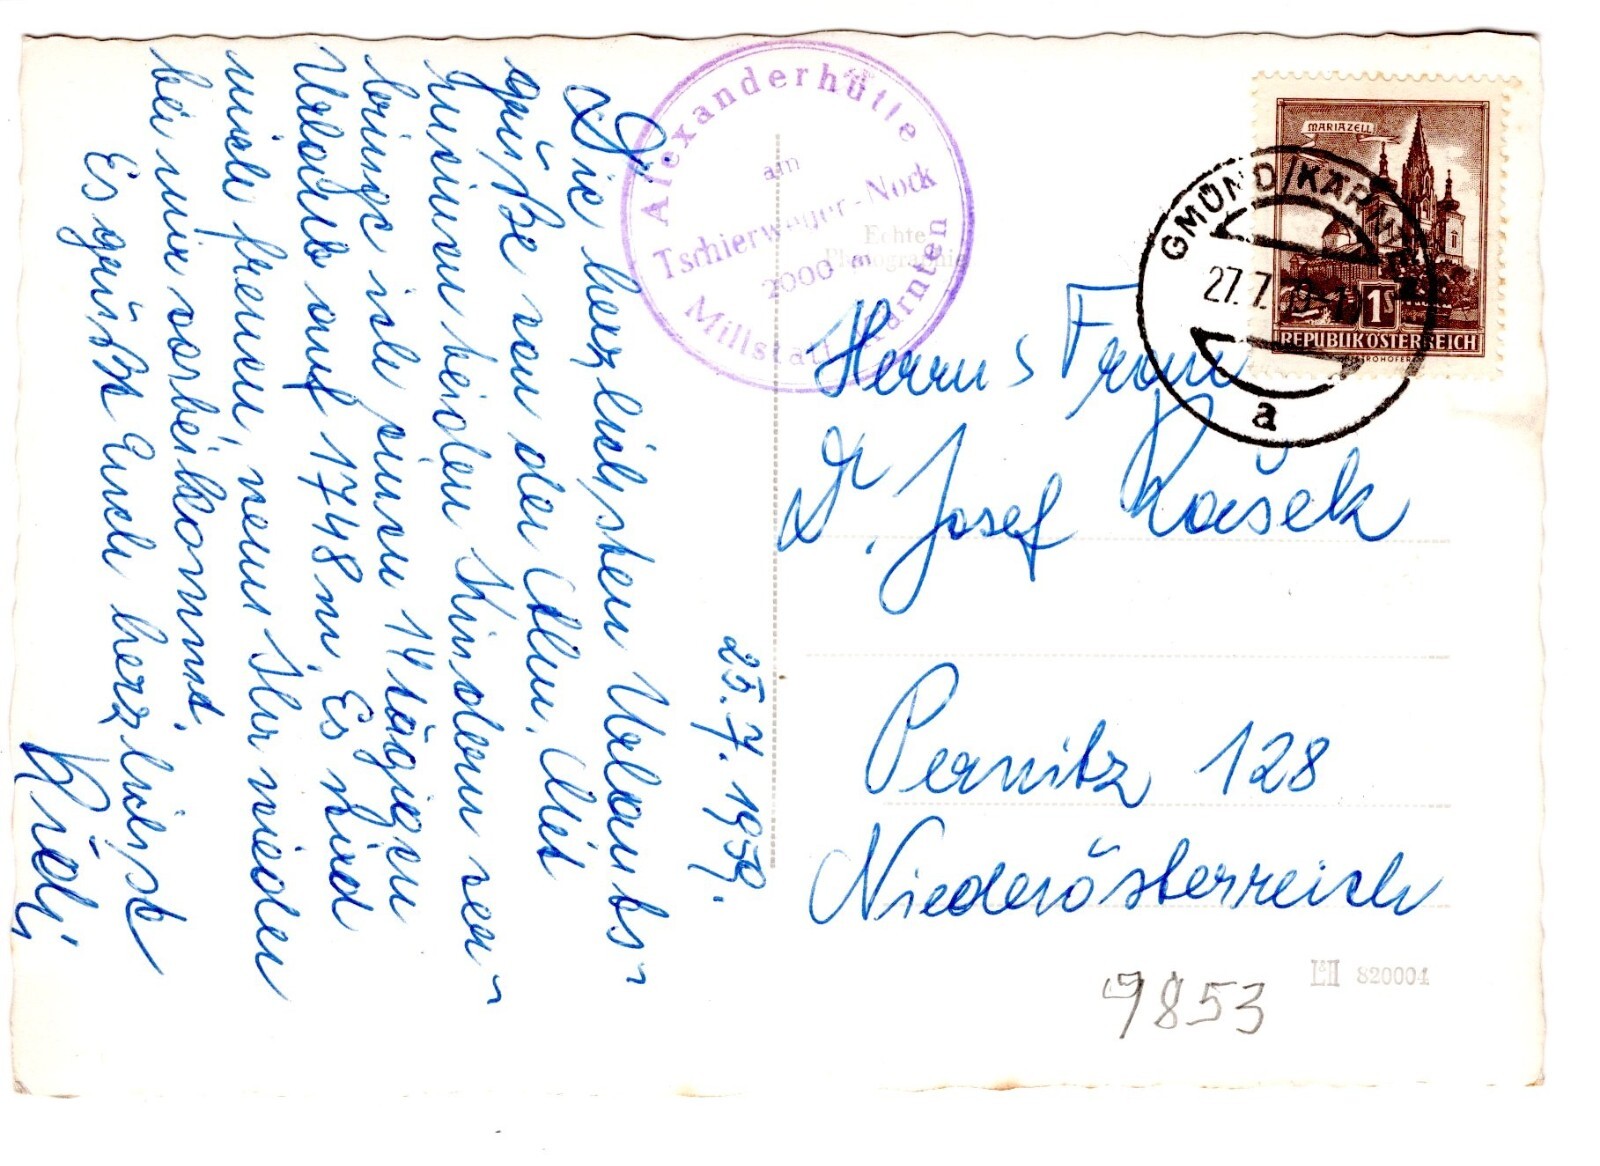 25. 7. 1959.
Die herzlichsten Urlaubs-
grüße von der Alm. Mit
meinen beiden Kindern ver-
bringe ich einen 14 tägigen
Urlaub auf 1748 m. Es wird
mich freuen, wenn Ihr wieder
bei mir vorbeikommt.
Es grüßt Euch herzlichst
Alexanderhütte
am
Tschierweger-Nock
2000 m
Millstatt Kärnten
Echte
Photographie
MARIAZELL
1S
REPUBLIK ÖSTERREICH
GMÜND/KÄRNTEN
27.7.
a
Herrn u Frau
Dr. Josef Kašek
Pernitz 128
Niederösterreich
9853
820004